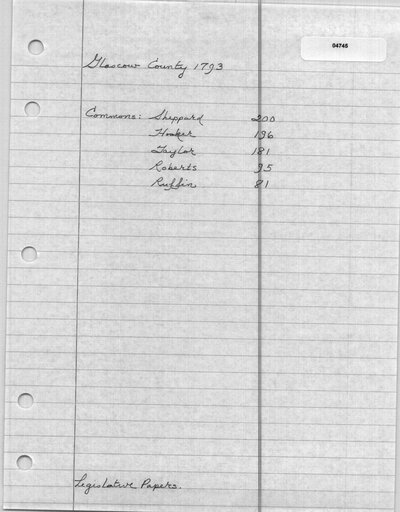 04745
Glascow County 1793
Commons: Sheppard 200
Hooker 196
Taylor 181
Roberts 95
Ruffin 81
Legislative Papers.